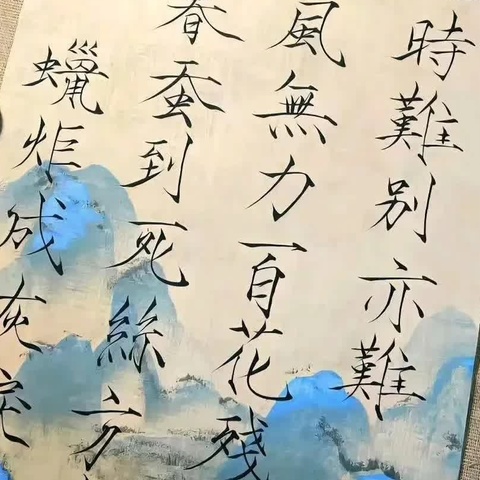 時難别亦難
風無力百花殘
春蚕到死絲方
蠟炬成灰